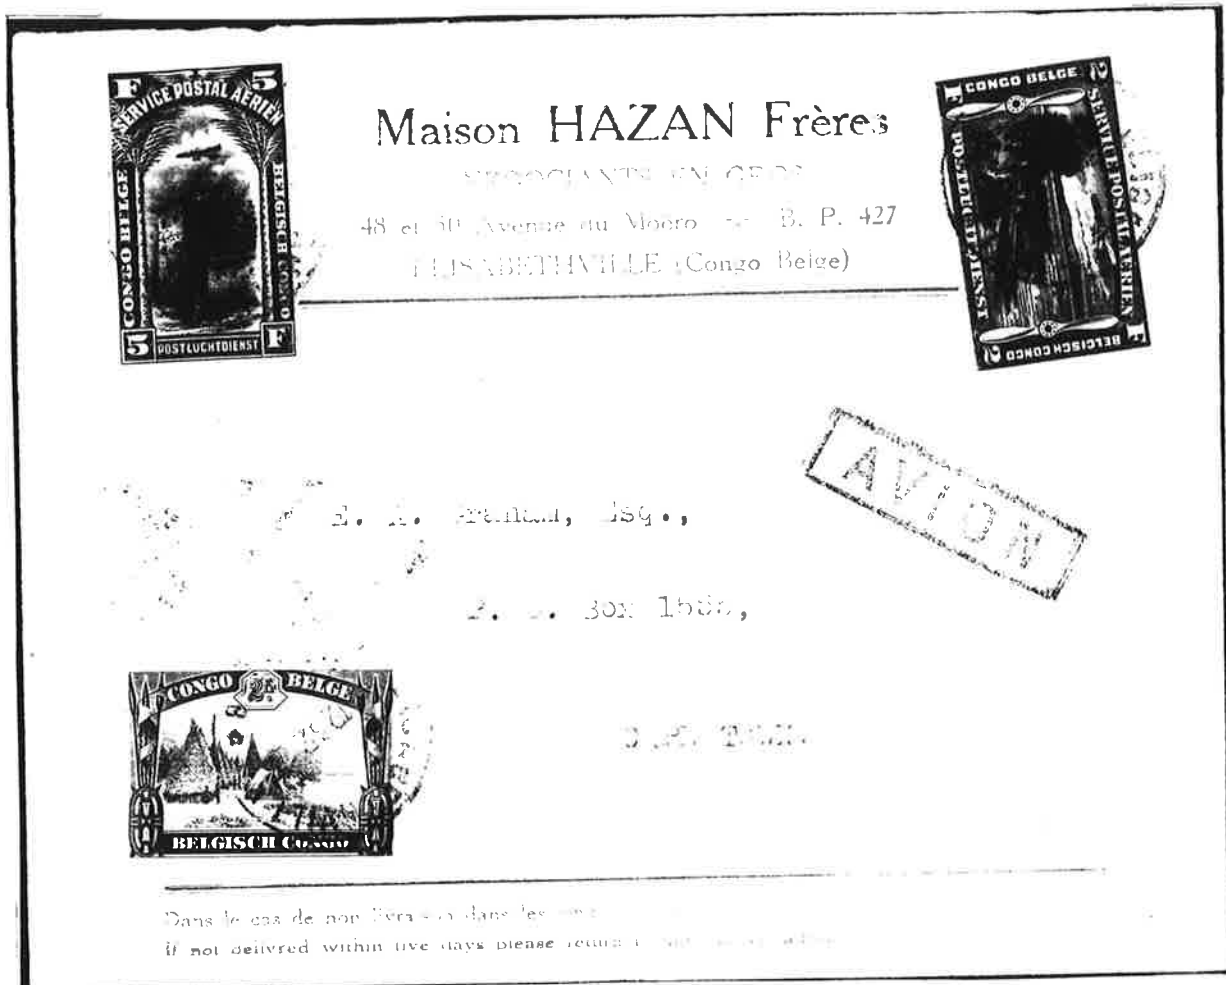 F 5
SERVICE POSTAL AÉRIEN
CONGO BELGE
BELGISCH CONGO
5 POSTLUCHTDIENST F
Maison HAZAN Frères
NEGOCIANTS EN GROS
48 et 50 Avenue du Moero B. P. 427
ELISABETHVILLE (Congo Belge)
F CONGO BELGE 2
POSTLUCHTDIENST
SERVICE POSTAL AÉRIEN
2 BELGISCH CONGO F
AVION
E. Esq.,
Box
CONGO BELGE
BELGISCH CONGO
Dans le cas de non livraison dans les
If not delivred within five days please return